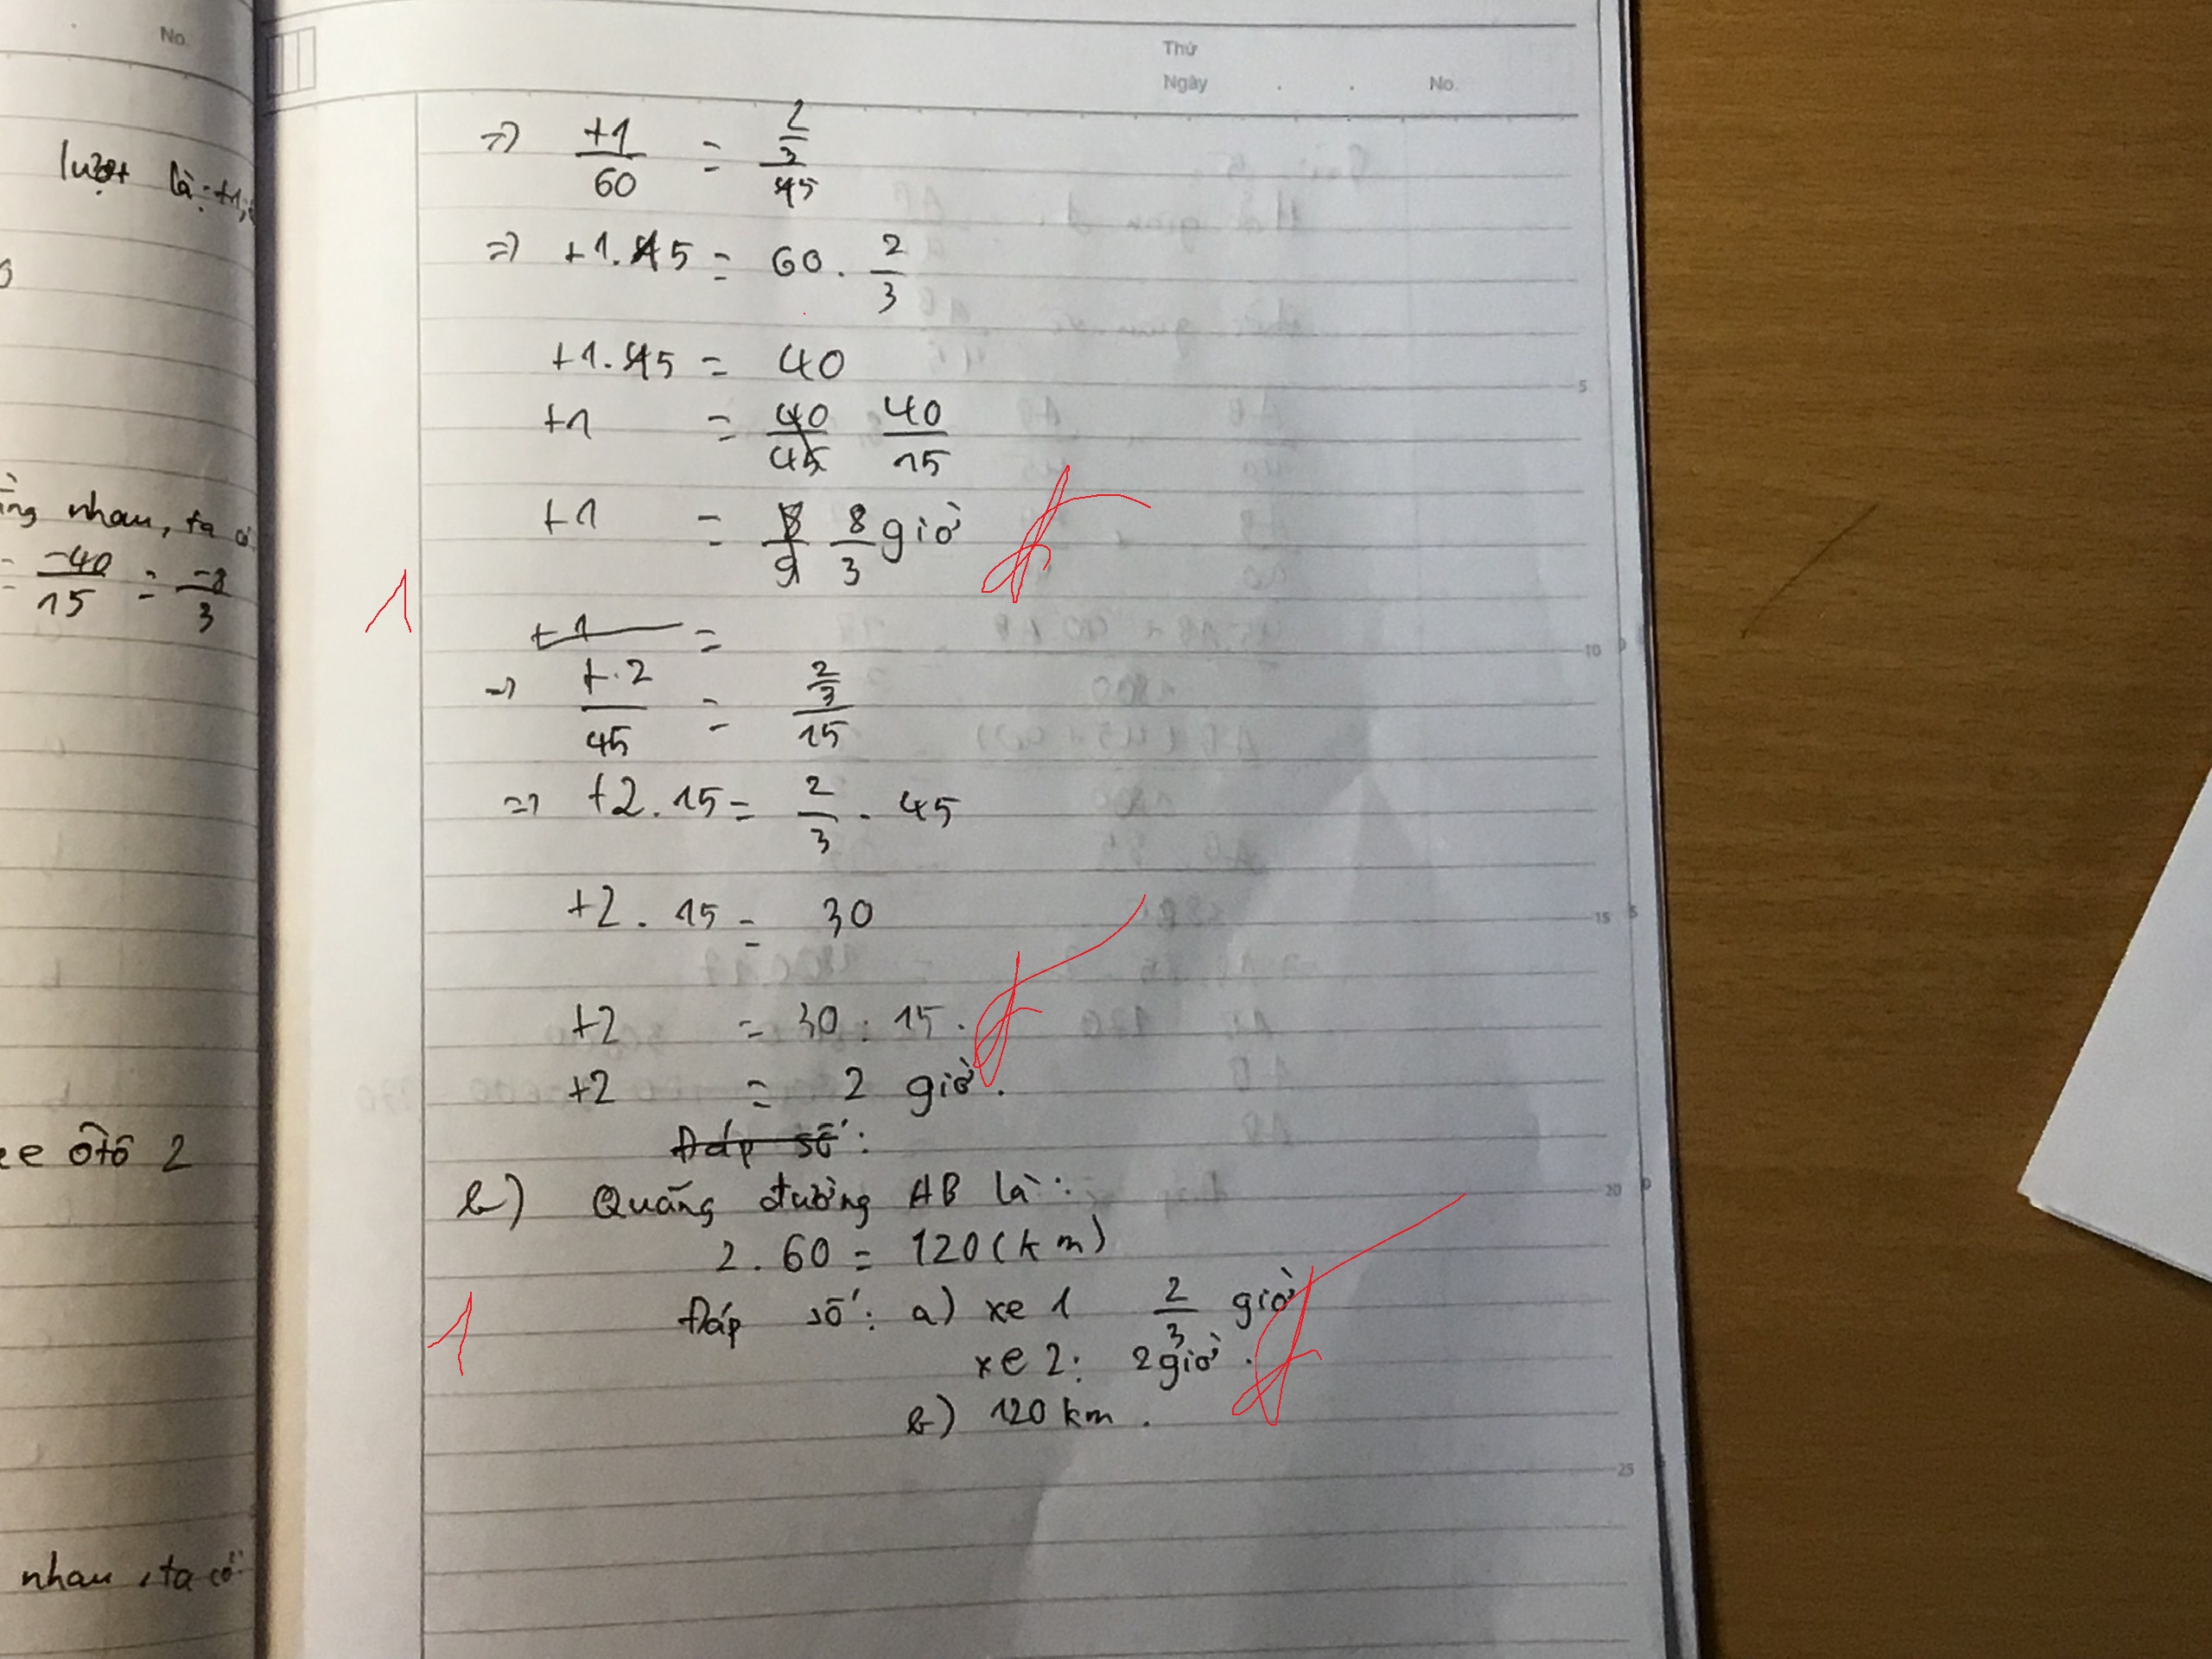 No.
lượt là: t1,
ằng nhau, ta có
= -40/15 = -8/3
xe ôtô 2
nhau, ta có
Thứ
Ngày . . No.
=> t1/60 = 2/3/45
=> t1.15 = 60 . 2/3
t1.15 = 40
t1 = 40/45 40/15
t1 = 8/9 8/3 giờ
1
t1 =
=> t.2/45 = 2/3/15
=> t2.15 = 2/3 . 45
t2.15 = 30
t2 = 30 : 15.
t2 = 2 giờ.
Đáp số:
b) Quãng đường AB là:
2.60 = 120 (km)
1
Đáp số: a) xe 1 2/3 giờ
xe 2: 2 giờ.
b) 120 km.
5
10
15
20
25